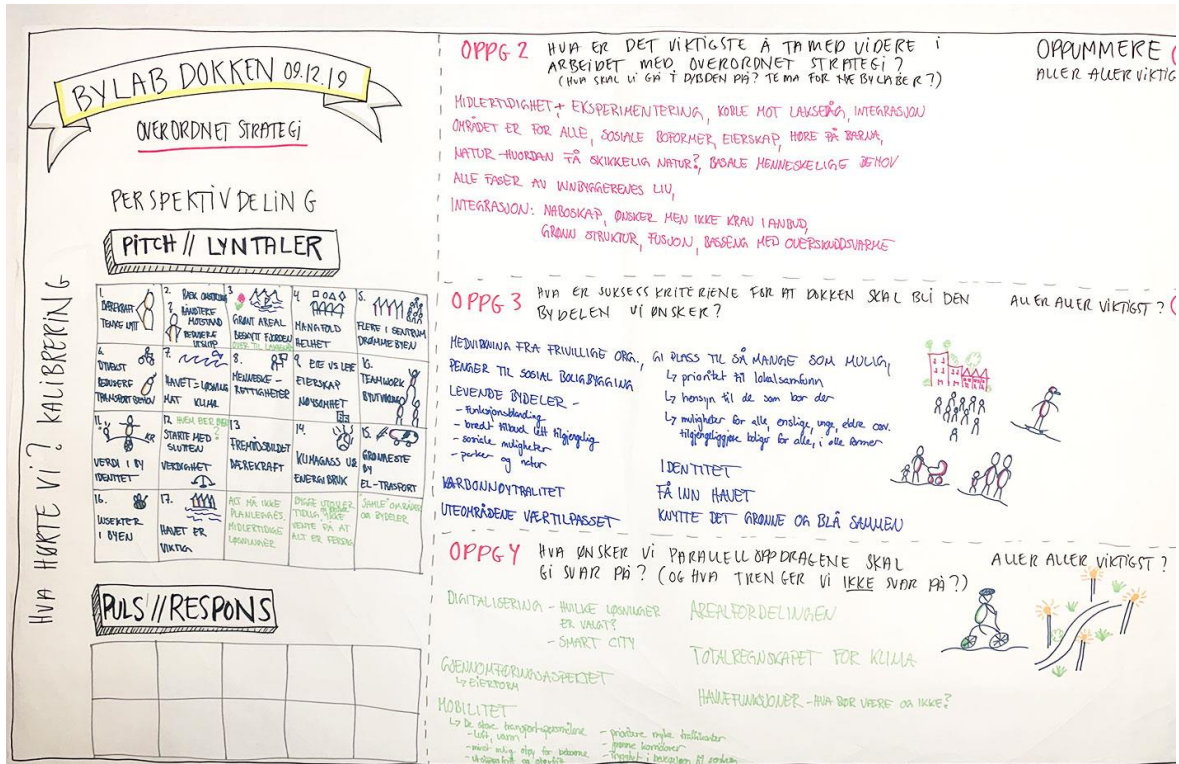 BYLAB DOKKEN 09.12.19
OVERORDNET STRATEGI
PERSPEKTIVDELING
PITCH // LYNTALER
HVA HØRTE VI? KALIBRERING
1.
BÆREKRAFT
TENKE NYTT
2.
HÅNDTERE
MOTSTAND
REDUSERE
UTSLIPP
3
GRØNT AREAL
BESKYTT FJORDEN
4
MANGFOLD
HELHET
5.
FLERE I SENTRUM
DRØMMEBYEN
6.
REDUSERE
TRANSPORT BEHOV
7.
HAVET = LØSNING
MAT KLIMA
8.
MENNESKE-
RETTIGHETER
9. EIE VS LEIE
EIERSKAP
NØYSOMHET
10.
TEAMWORK
BYUTVIKING
11.
KR
VERDI I BY
IDENTITET
12. HVEM BER OM
?
STARTE MED
SLUTTEN
VERDIGHET
13
FREMTIDSBILDET
BÆREKRAFT
14.
KLIMAGASS VS
ENERGI BRUK
15.
GRØNNESTE
BY
EL-TRASPORT
16.
INSEKTER
I BYEN
17.
HAVET ER
VIKTIG
ALT MÅ IKKE
PLANLEGGES,
MIDLERTIDIGE
LØSNINGER
BYGGE UTOVER
TIDLIG, IKKE
VENTE PÅ AT
ALT ER FERDIG
"SAMLE" OMRÅDER
OG BYDELER
PULS // RESPONS
OPPG 2 HVA ER DET VIKTIGSTE Å TA MED VIDERE I
ARBEIDET MED OVERORDNET STRATEGI?
(HVA SKAL VI GÅ I DYBDEN PÅ? TEMA FOR NYE BYLABER?)
OPPUMMERE
ALLER ALLER VIKTIG
MIDLERTIDIGHET + EKSPERIMENTERING, KOBLE MOT LAKSEVÅG, INTEGRASJON
OMRÅDET ER FOR ALLE, SOSIALE BOFORMER, EIERSKAP, HØRE PÅ BARNA,
NATUR - HVORDAN FÅ SKIKKELIG NATUR?, BASALE MENNESKELIGE BEHOV
ALLE FASER AV INNBYGGERENES LIV,
INTEGRASJON: NABOSKAP, ØNSKER MEN IKKE KRAV I ANBUD,
GRØNN STRUKTUR, FUSJON, BASSENG MED OVERSKUDDSVARME
OPPG 3 HVA ER SUKSESS KRITERIENE FOR AT DOKKEN SKAL BLI DEN
BYDELEN VI ØNSKER?
ALLER ALLER VIKTIGST?
MEDVIRKNING FRA FRIVILLIGE ORG,
PENGER TIL SOSIAL BOLIGBYGGING
LEVENDE BYDELER -
- funksjonsblanding
- bredt tilbud lett tilgjengelig
- sosiale muligheter
- parker og natur
KARBONNØYTRALITET
UTEOMRÅDENE VÆRTILPASSET
GI PLASS TIL SÅ MANGE SOM MULIG,
↳ prioritet til lokalsamfunn
↳ hensyn til de som bor der
↳ muligheter for alle, enslige, unge, eldre osv.
tilgjengeliggjøre boliger for alle, i alle former
IDENTITET
FÅ INN HAVET
KNYTTE DET GRØNNE OG BLÅ SAMMEN
OPPG 4 HVA ØNSKER VI PARALLELLOPPDRAGENE SKAL
GI SVAR PÅ? (OG HVA TRENGER VI IKKE SVAR PÅ?)
ALLER ALLER VIKTIGST?
DIGITALISERING - HVILKE LØSNINGER
ER VALGT?
- SMART CITY
GJENNOMFØRINGSASPEKTET
↳ EIERFORM
MOBILITET
↳ De store transportspørsmålene
- luft, vann
- minst mulig støy for beboerne
- prioritere myke trafikanter
- grønne korridorer
AREALFORDELINGEN
TOTALREGNSKAPET FOR KLIMA
HAVNEFUNKSJONER - HVA BØR VÆRE OG IKKE?